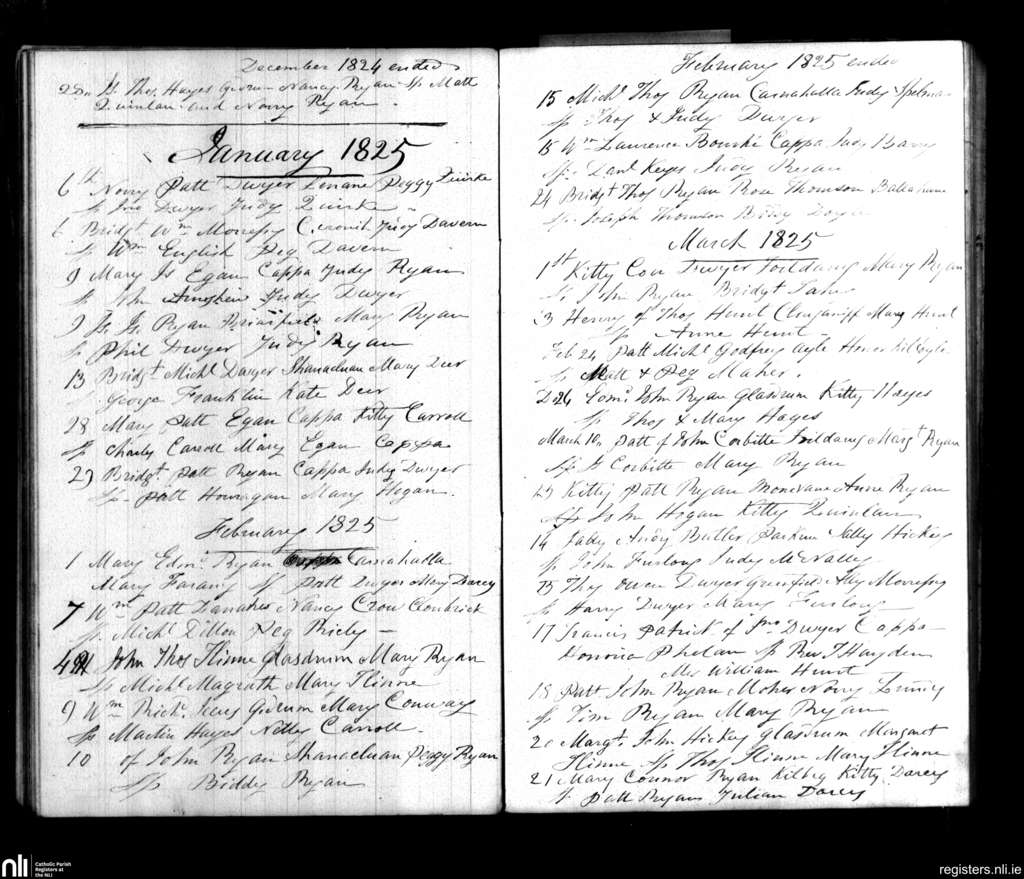 December 1824 ended
Thos Hayes Nancy Ryan Sp Matt
Quinlan and Nory Ryan
January 1825
6th Nory Patt Dwyer Peggy Quirke
Sp Dwyer Judy Quirke
6 Bridgt Wm Morressy Judy Davern
Sp Wm English Peg Davern
9 Mary Js Egan Cappa Judy Ryan
Sp John Judy Dwyer
9 Ryan Mary Ryan
Sp Phil Dwyer Judy Ryan
13 Bridgt Michl Dwyer Shanacluan Mary Deer
George Franklin Kate Deer
28 Mary Patt Egan Cappa Kitty Carroll
Sp Charly Carroll Mary Egan Cappa
29 Bridgt Patt Ryan Cappa Judy Dwyer
Sp Patt Hourigan Mary Hogan
February 1825
1 Mary Edmd Ryan Carnahalla
Mary Sp Patt Dwyer Mary Darcy
7 Wm Patt Nancy Crow Clonbrick
Sp Michl Dillon Peg
John Thos Flinne Glasdrum Mary Ryan
Sp Michl Magrath Mary Flinne
9 Wm Richd Mary Conway
Sp Martin Hayes Nelly Carroll
10 of John Ryan Shanacluan Peggy Ryan
Sp Biddy Ryan
February 1825 ended
15 Michl Thos Ryan Carnahalla Judy
Sp Thos & Judy Dwyer
15 Wm Laurence Bourke Cappa Judy Barry
Sp Danl Keyes Judy Ryan
24 Bridgt Thos Ryan Rose Thomson
Sp Joseph Thomson Biddy
March 1825
1st Kitty Con Dwyer Foildarig Mary Ryan
Sp John Ryan Bridgt
3 Henery of Thos Hunt Mary Hunt
Sp Anne Hunt
Feb 24 Patt Michl Godfrey Ayle
Sp Matt & Peg Maher.
Do 26 Edmd John Ryan Glasdrum Kitty Hayes
Sp Thos & Mary Hayes
March 10 Patt of John Corbitte Foildarig Margt Ryan
Sp Js Corbitte Mary Ryan
Kitty Patt Ryan Anne Ryan
Sp John Hogan Kitty Quinlan
14 Andy Butler Sally Hickey
Sp John Furlong Judy McNalley
15 Thos Owen Dwyer Greenfield Morressy
Sp Harry Dwyer Mary Furlong
17 Francis Patrick of Jno Dwyer Cappa
Honoria Phelan Sp Rev. T Hayden
Mrs William Hunt
18 Patt John Ryan Moher Nory
Sp Tim Ryan Mary Ryan
20 Margt John Hickey Glasdrum Margaret
Flinne Sp Thos Flinne Mary Flinne
21 Mary Connor Ryan Kilbeg Kitty Darcy
Sp Patt Ryan Julian Darcy
nli
Catholic Parish
Registers at
the NLI
registers.nli.ie